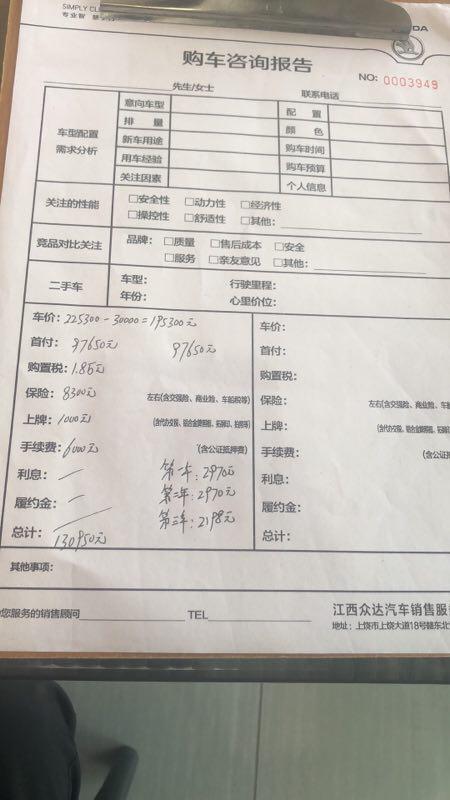 SIMPLY CL
专业智
DA
购车咨询报告
NO: 0003949
先生/女士 联系电话
车型配置需求分析 意向车型 配置
排量 颜色
新车用途 购车时间
用车经验 购车预算
关注因素 个人信息
关注的性能 □安全性 □动力性 □经济性
□操控性 □舒适性 □其他:
竞品对比关注 品牌: □质量 □售后成本 □安全
□服务 □亲友意见 □其他:
二手车 车型: 行驶里程:
年份: 心里价位:
车价: 225300-30000=195300元
首付: 97650元 97650元
购置税: 1.85万
保险: 8300元 左右(含交强险、商业险、车船税等)
上牌: 1000元
手续费: 6000元 (含公证抵押费)
利息: 第一年: 2970元
履约金: 第二年: 2970元
第三年: 2198元
总计: 130950元
车价:
首付:
购置税:
保险: 左右(含交强险、商业险、车
上牌:
手续费: (含公证抵
利息:
履约金:
总计:
其他事项:
您服务的销售顾问 TEL 江西众达汽车销售服
地址: 上饶市上饶大道18号赣东北